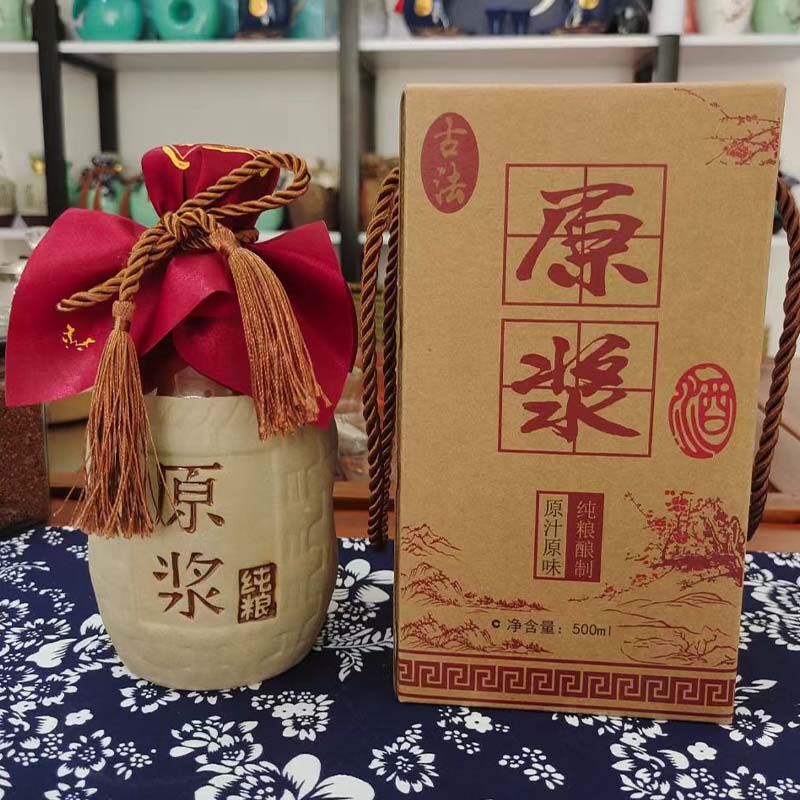 原
浆
纯粮
古法
原
浆
酒
纯粮酿制
原汁原味
C 净含量：500ml